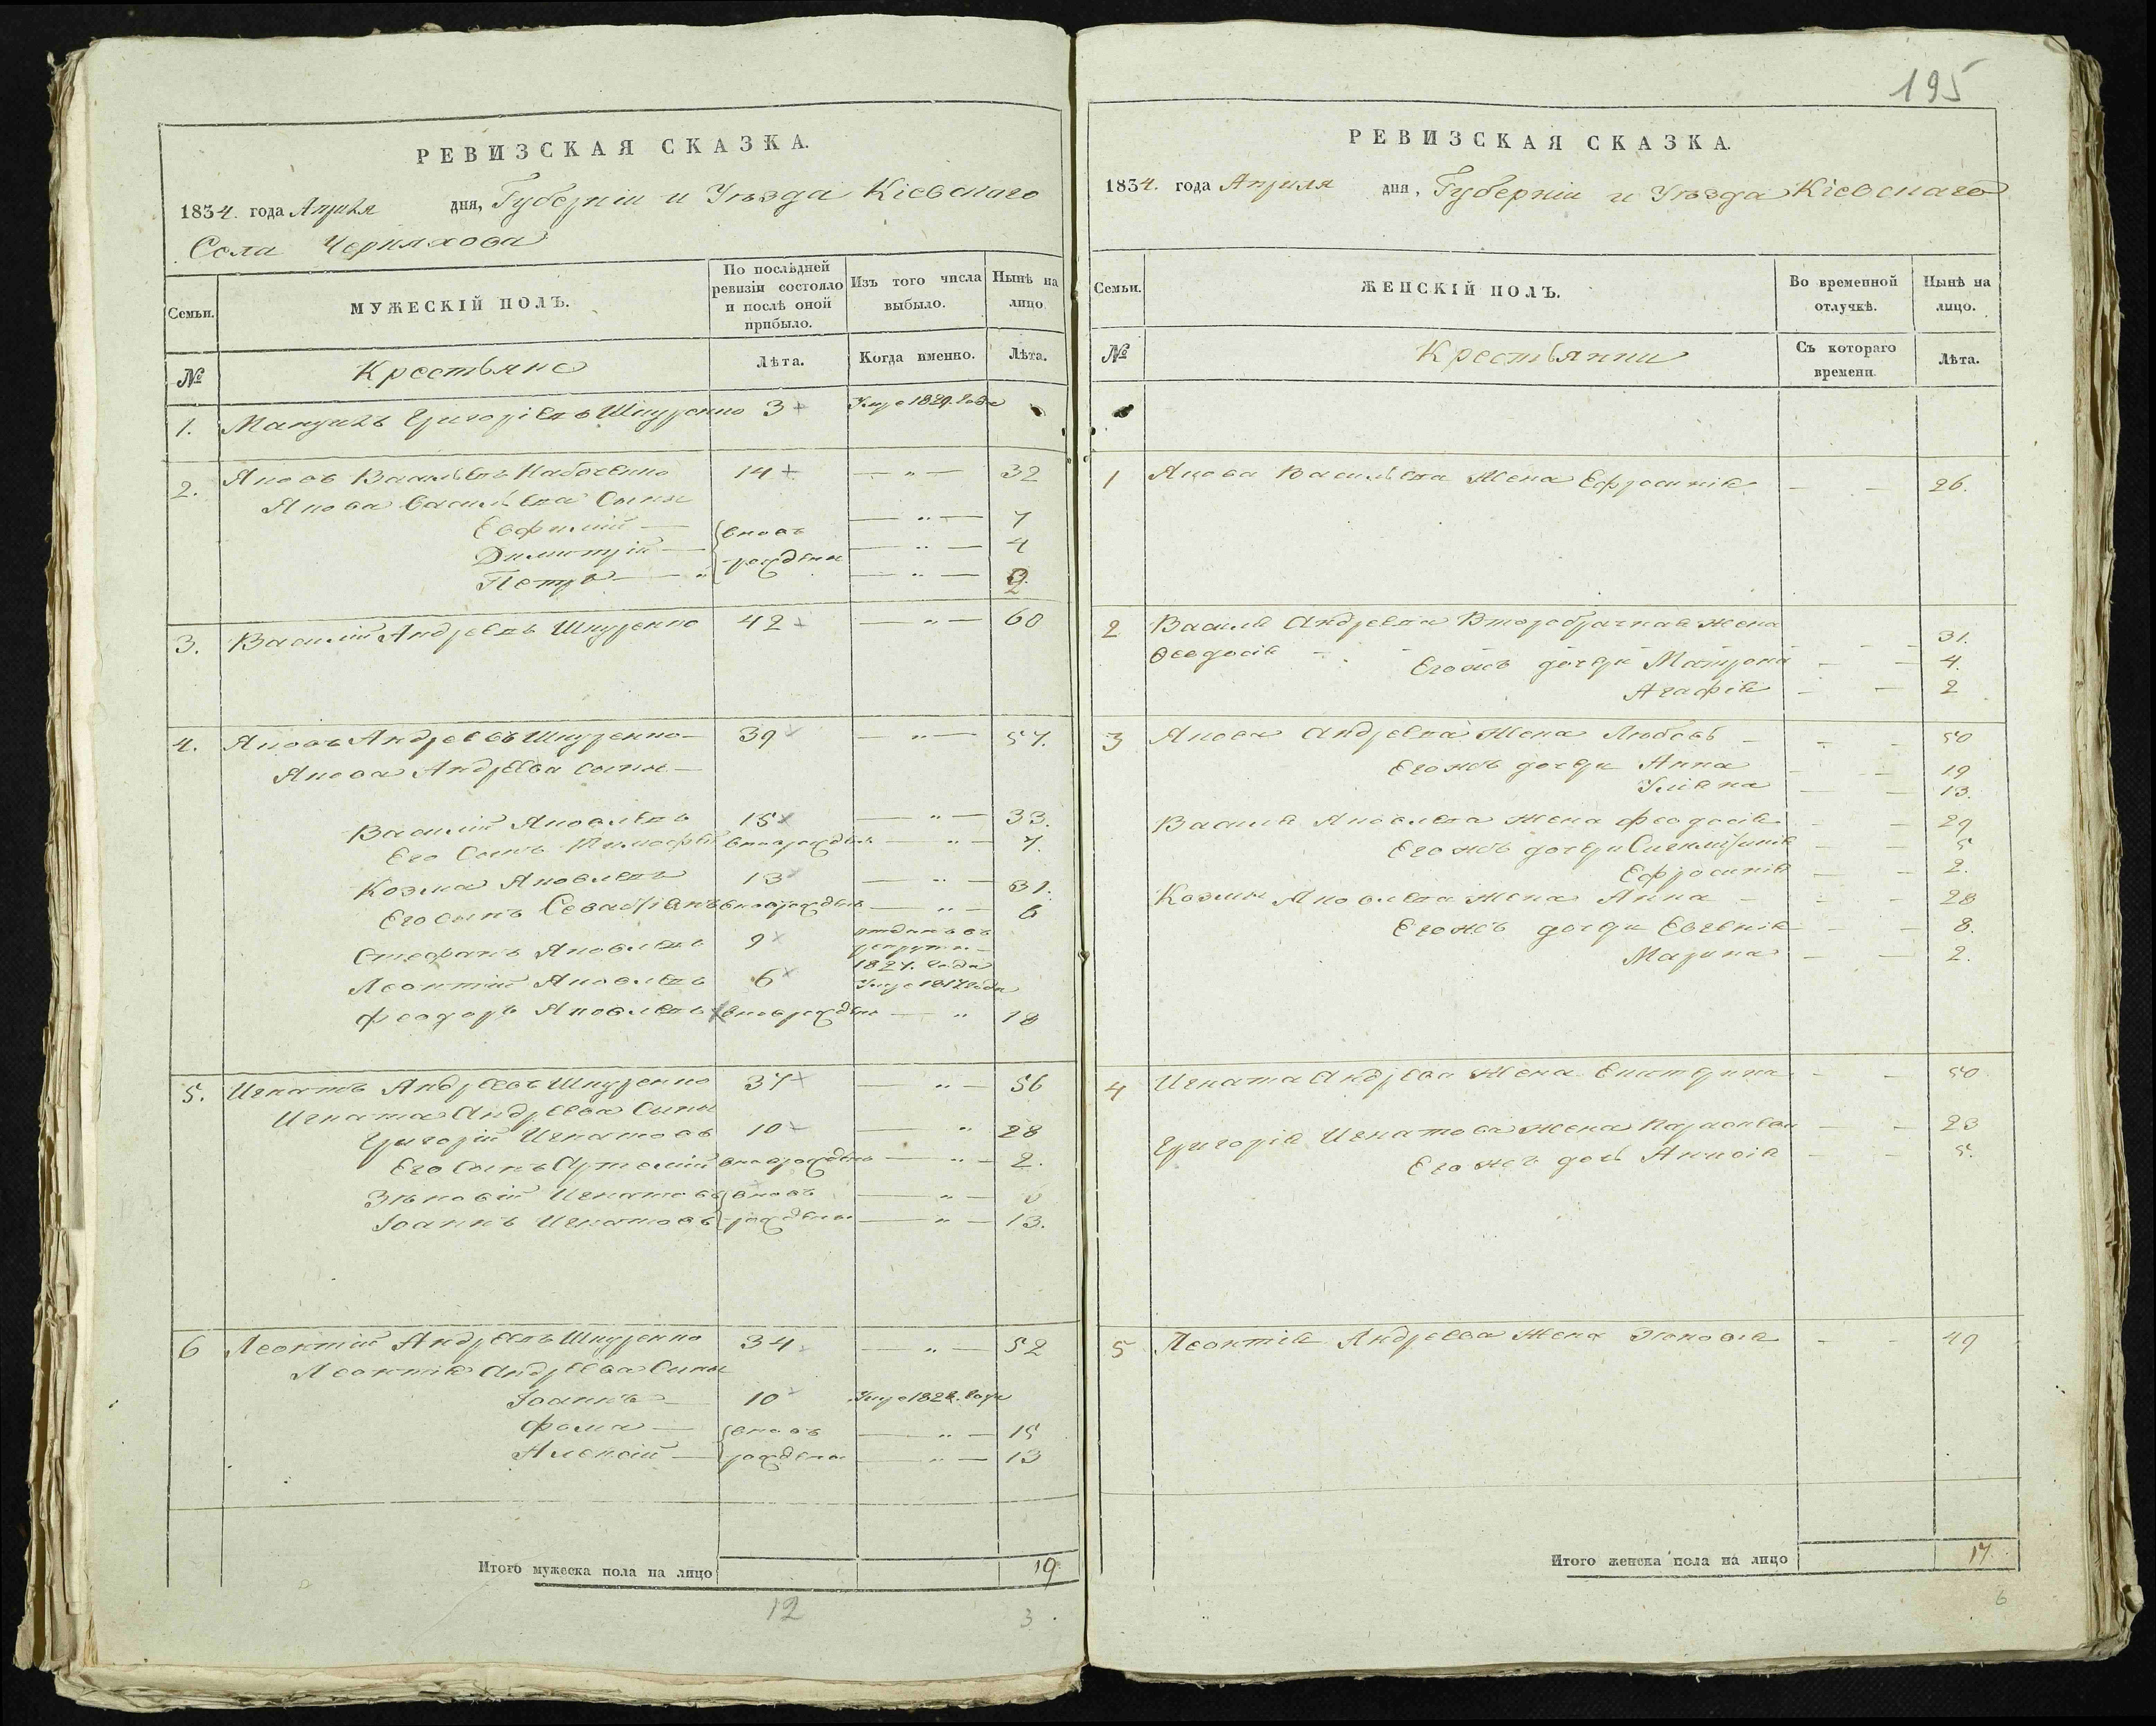 РЕВИЗСКАЯ СКАЗКА.
1834. года Апреля дня, Губернiи и Уѣзда Кiевскаго
Села Черняхова
Семьи.
МУЖЕСКIЙ ПОЛЪ.
По послѣдней ревизiи состояло и послѣ оной прибыло.
Изъ того числа выбыло.
Нынѣ на лицо.
№
Крестьяне
Лѣта.
Когда именно.
Лѣта.
1. Григорiевъ Шпуренко 3 Умре 1829. года
2. Яковъ Васильевъ 14 — " — 32
Якова Васильева Сыны
Евфимiй — вновь — " — 7
Димитрiй — рождены — " — 4
Петръ — " — " — 2
3. Василiй Андреевъ Шпуренко 42 — " — 60
4. Яковъ Андреевъ Шпуренко — 39 — " — 57.
Якова Андреева сыны —
Василiй Яковлевъ 15 — " — 33.
Его Сынъ Тимофей вновь рожденъ — " — 7.
Козма Яковлевъ 13 — " — 31.
Его сынъ вновь рожденъ — " — 6
Стефанъ Яковлевъ 9 отданъ въ рекруты — 1827. года
Леонтiй Яковлевъ 6 Умре года
Феодоръ Яковлевъ вновь рожденъ — " 18
5. Игнатъ Андреевъ Шпуренко 37 — " — 56
Игната Андреева Сыны
Григорiй Игнатовъ 10 — " 28
Его Сынъ Артемiй вновь рожденъ — " — 2.
Зѣновiй Игнатовъ вновь — " —
Iоаннъ Игнатовъ рождены — " — 13.
6 Леонтiй Андреевъ Шпуренко 34 — " — 52
Леонтiя Андреева Сыны
Iоаннъ — 10 Умре года
Фома — вновь — " — 15
Алексiй — рождены — " — 13
Итого мужеска пола на лицо 19
12
3
195
РЕВИЗСКАЯ СКАЗКА.
1834. года Апреля дня, Губернiи и Уѣзда Кiевскаго
Семьи.
ЖЕНСКIЙ ПОЛЪ.
Во временной отлучкѣ.
Нынѣ на лицо.
№
Крестьянки
Съ котораго времени.
Лѣта.
1 Якова Васильева Жена Ефросинiя — — 26.
2 Василiя Андреева Второбрачная жена
Феодосiя - - - - 31.
Его жъ дочери Матрона — — 4.
Агафiя — — 2
3 Якова Андреева Жена Любовь — - - 50
Его жъ дочери Анна — — 19
Улiяна — — 13.
Василiя Яковлева жена Феодосiя — — 29
Его жъ дочери — — 5
Ефросинiя — — 2.
Козмы Яковлева жена Анна - - - 28
Его жъ дочери Евгенiя — — 8.
Марина — — 2.
4 Игната Андреева Жена — — 50
Григорiя Игнатова жена — — 23
Его жъ дочь — — 5.
5 Леонтiя Андреева жена — — 49
Итого женска пола на лицо 17.
6